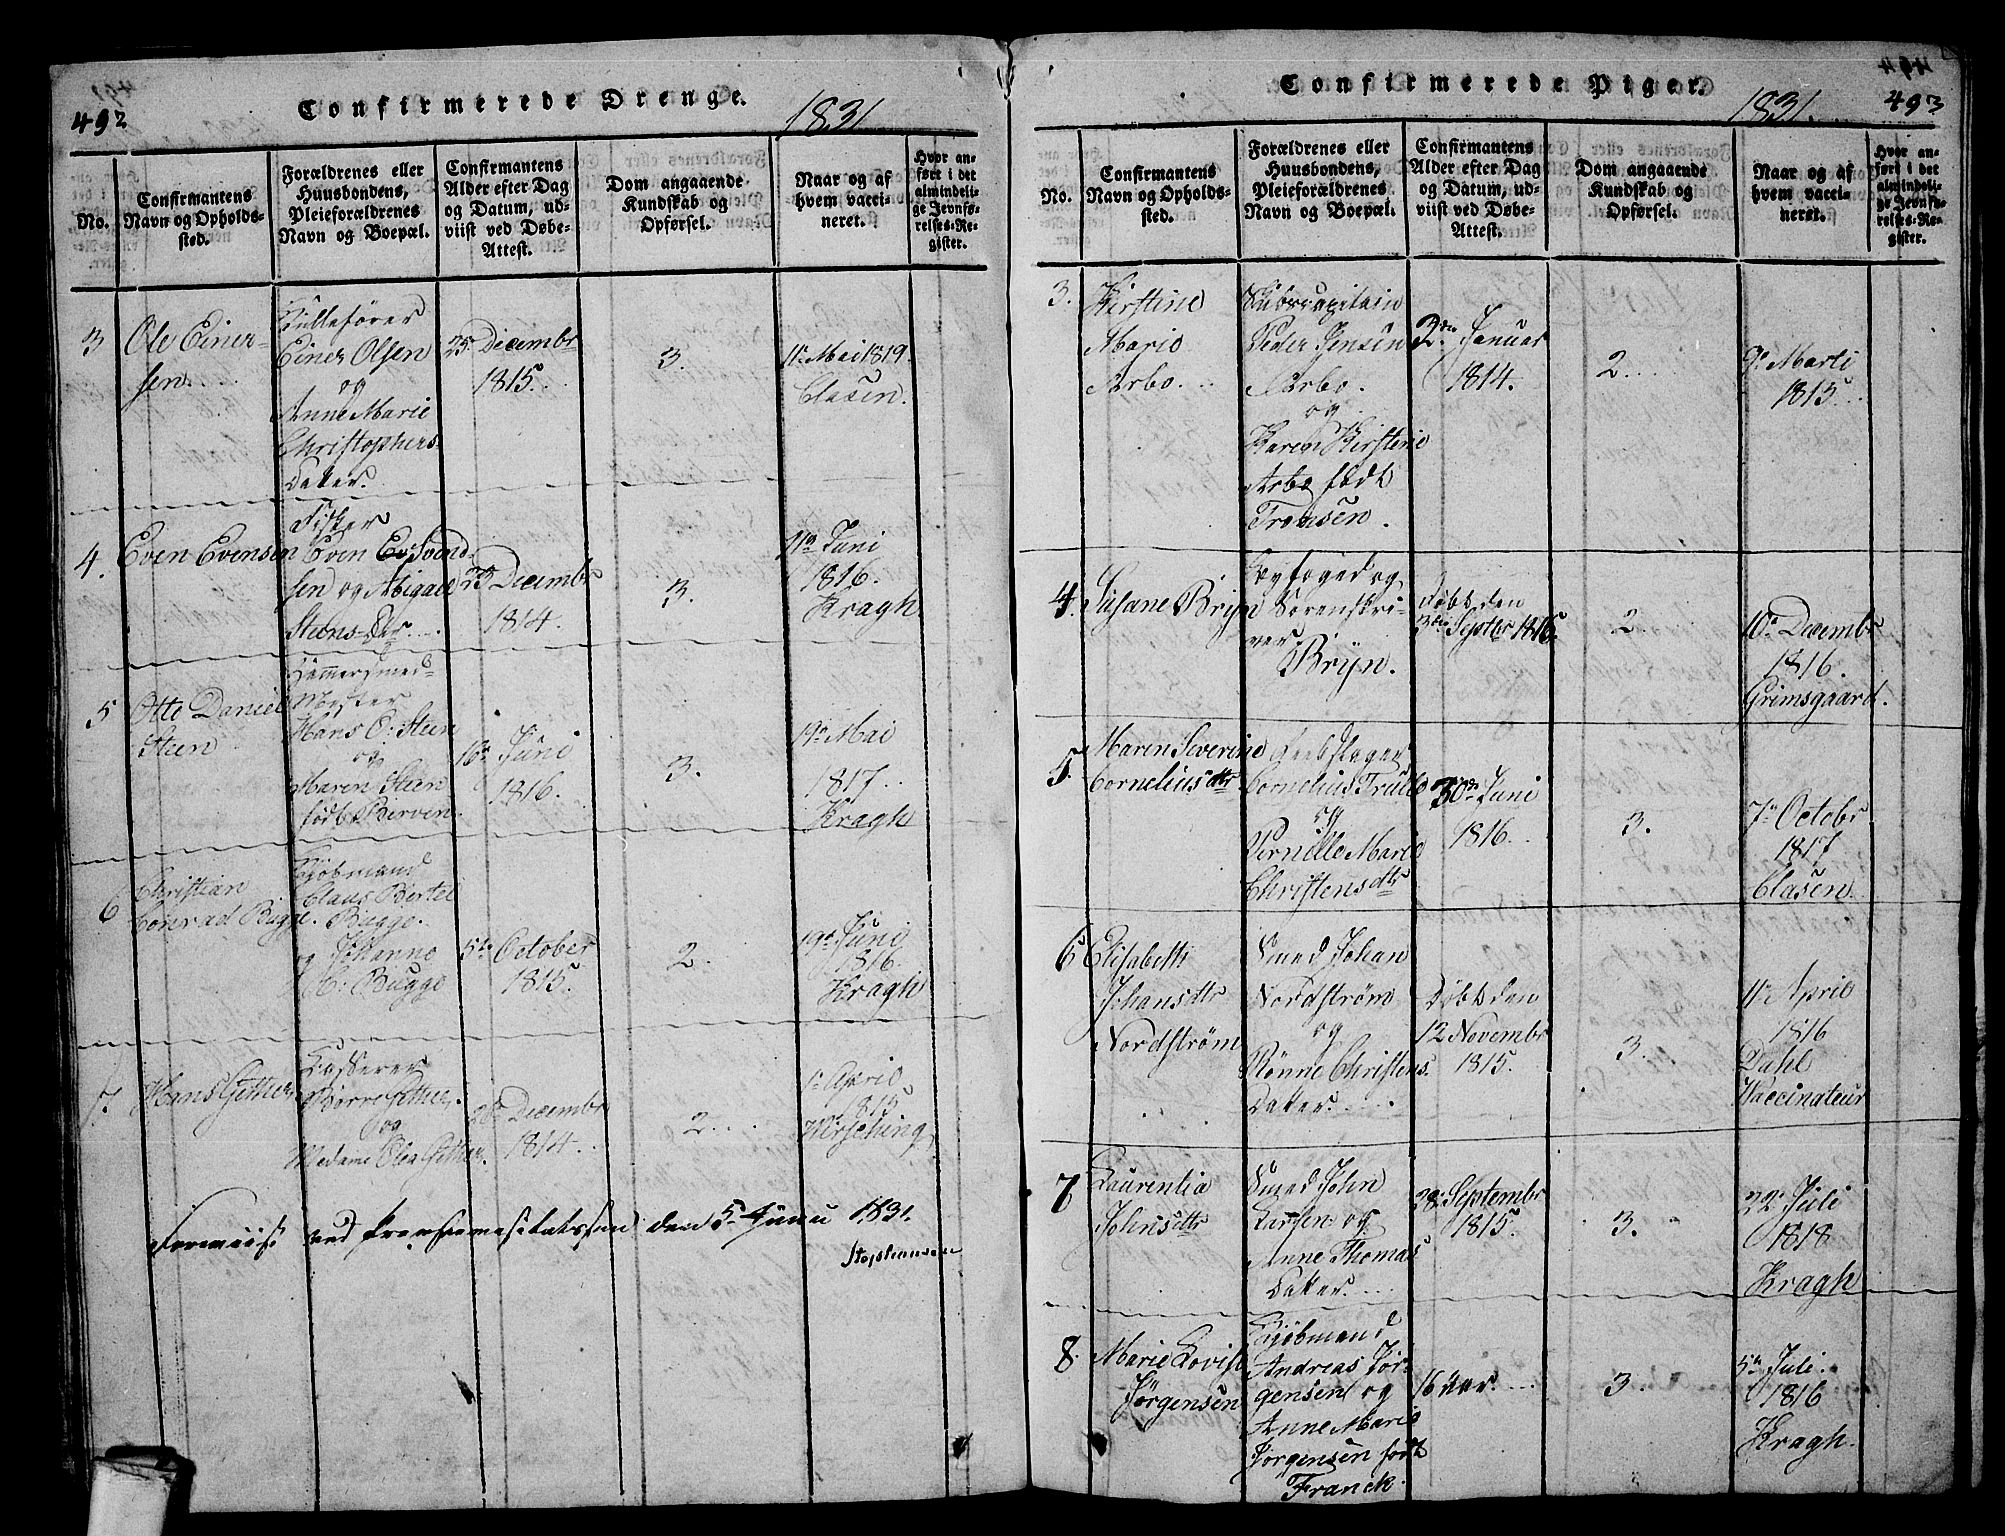 492
Confirmerede Drenge.
1831
No.
Confirmantens
Navn og Opholds-
sted.
Forældrenes eller
Huusbondens,
Pleieforældrenes
Navn og Boepæl.
Confirmantens
Alder efter Dag
og Datum, ud-
viist ved Døbe-
Attest.
Dom angaaende
Kundskab og
Opførsel.
Naar og af
hvem vacci-
neret.
Hvor an-
ført i det
almindeli-
ge Jevnfø-
relses-Re-
gister.
3
Ole Einer-
sen
Einer Olsen
og
Anne Marie
Christophers-
Datter.
25 Decembr
1815.
3.
11te Mai 1819.
Clasen.
4.
Even Evensen
Fisker
Even Svend-
sen og Abigael
Steens-Dtr
23 Decembr
1814.
3.
11te Juni
1816.
Kragh
5
Otte Daniel
Steen
Hammersmed-
Mester
Hans O: Steen
og
Maren Steen
født Berven
16de Juni
1816.
3.
19de Mai
1817.
Kragh
6
Christian
Conrad Bugge.
Kjøbmand
Claus Bertel
Bugge.
og Johanne
C: Bugge
5te October
1815.
2.
19de Juni
1816.
Kragh
7.
Hans Gether
Casserer
Børre Gether.
og
Madame Olea Gether.
26 Decembr
1814.
2.
1te April
1815
Wirsching
Foreviist ved den 5te Junii 1831.
Stephansen
Confirmerede Piger.
1831.
493
No.
Confirmantens
Navn og Opholds-
sted.
Forældrenes eller
Huusbondens,
Pleieforældrenes
Navn og Boepæl.
Confirmantens
Alder efter Dag
og Datum, ud-
viist ved Døbe-
Attest.
Dom angaaende
Kundskab og
Opførsel.
Naar og af
hvem vacci-
neret.
Hvor an-
ført i det
almindeli-
ge Jevnfø-
relses-Re-
gister.
3.
Kirstine
Marie
Arbo.
Peder Jensen
Arbo.
og
Karen Kirstine
Arbo født
Tromsen.
2den Januar
1814.
2
9de Marti
1815
4.
Susane Bryn
Byfoged og
Sorenskri-
ver
Bryn.
Døbt den
3die Septbr 1815.
2.
10de Decembr
1816.
Grimsgaard.
5.
Maren Severine
Cornelius dtr
Reebslager
Cornelius Truls
og
Pernille Marie
Christens dtr
30de Juni
1816.
3.
7de Octobr
1817
Clasen
6
Elisabeth
Johans dtr
Nordstrøm
Smed Johan
Nordstrøm
og
Rønne Christens.
Datter.
Døbt den
12 Novembr
1815.
3.
11te April
1816
Dahl
Vaccinateur
7
Laurentia
Johns dtr
Smed John
Larsen og
Anne Thomas
Datter.
28 Septembr
1815.
3.
22 Juli
1818
Kragh
8.
Marie Lovise
Jørgensen
Kjøbmand
Andreas Jør-
gensen og
Anne Marie
Jørgensen født
Franck.
16 Aar.
3.
5te Juli.
1816
Kragh.